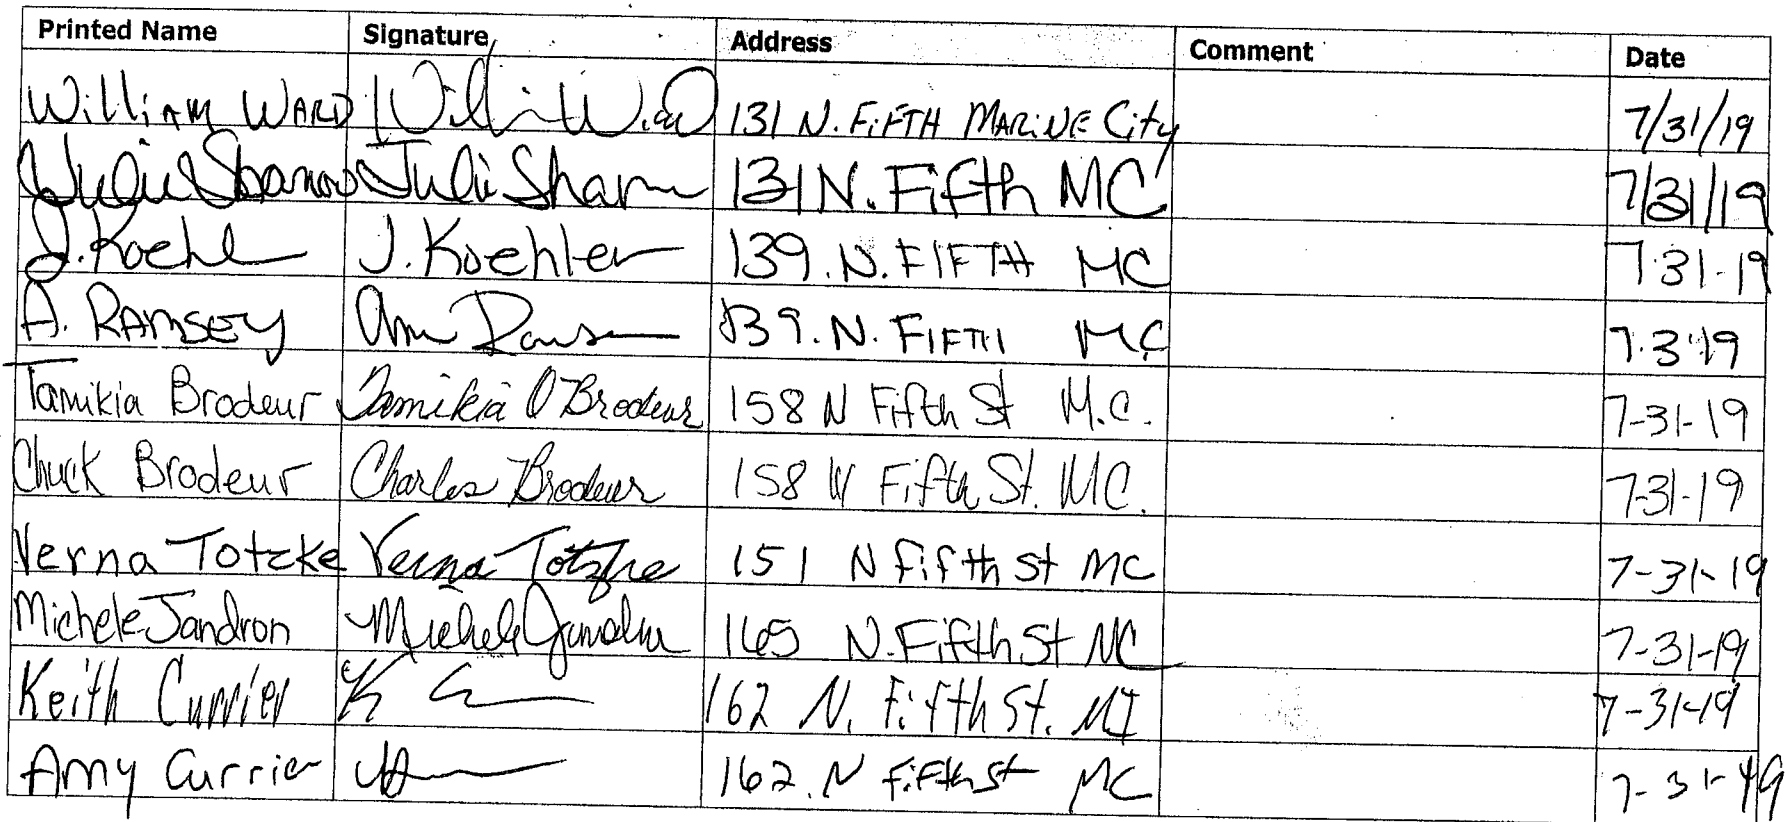 Printed Name Signature Address Comment Date
William Ward William Ward 131 N. Fifth Marine City 7/31/19
Julie Julie 131 N. Fifth MC 7/31/19
J. Koehl J. Koehler 139. N. FIFTH MC 7-31-19
A. RAMSEY Ann 139. N. FIFTH MC 7.3 19
Tamikia Brodeur Tamikia O Brodeur 158 N Fifth St M.C. 7-31-19
Chuck Brodeur Charles Brodeur 158 N Fifth St. MC. 7-31-19
Verna Totzke Verna Totzke 151 N Fifth St MC 7-31-19
Michele Jandron Michele Jandron 165 N. Fifth St MC 7-31-19
Keith Currier K C 162 N. Fifth St. MI 7-31-19
Amy Currier 162. N Fifth St MC 7-31-19